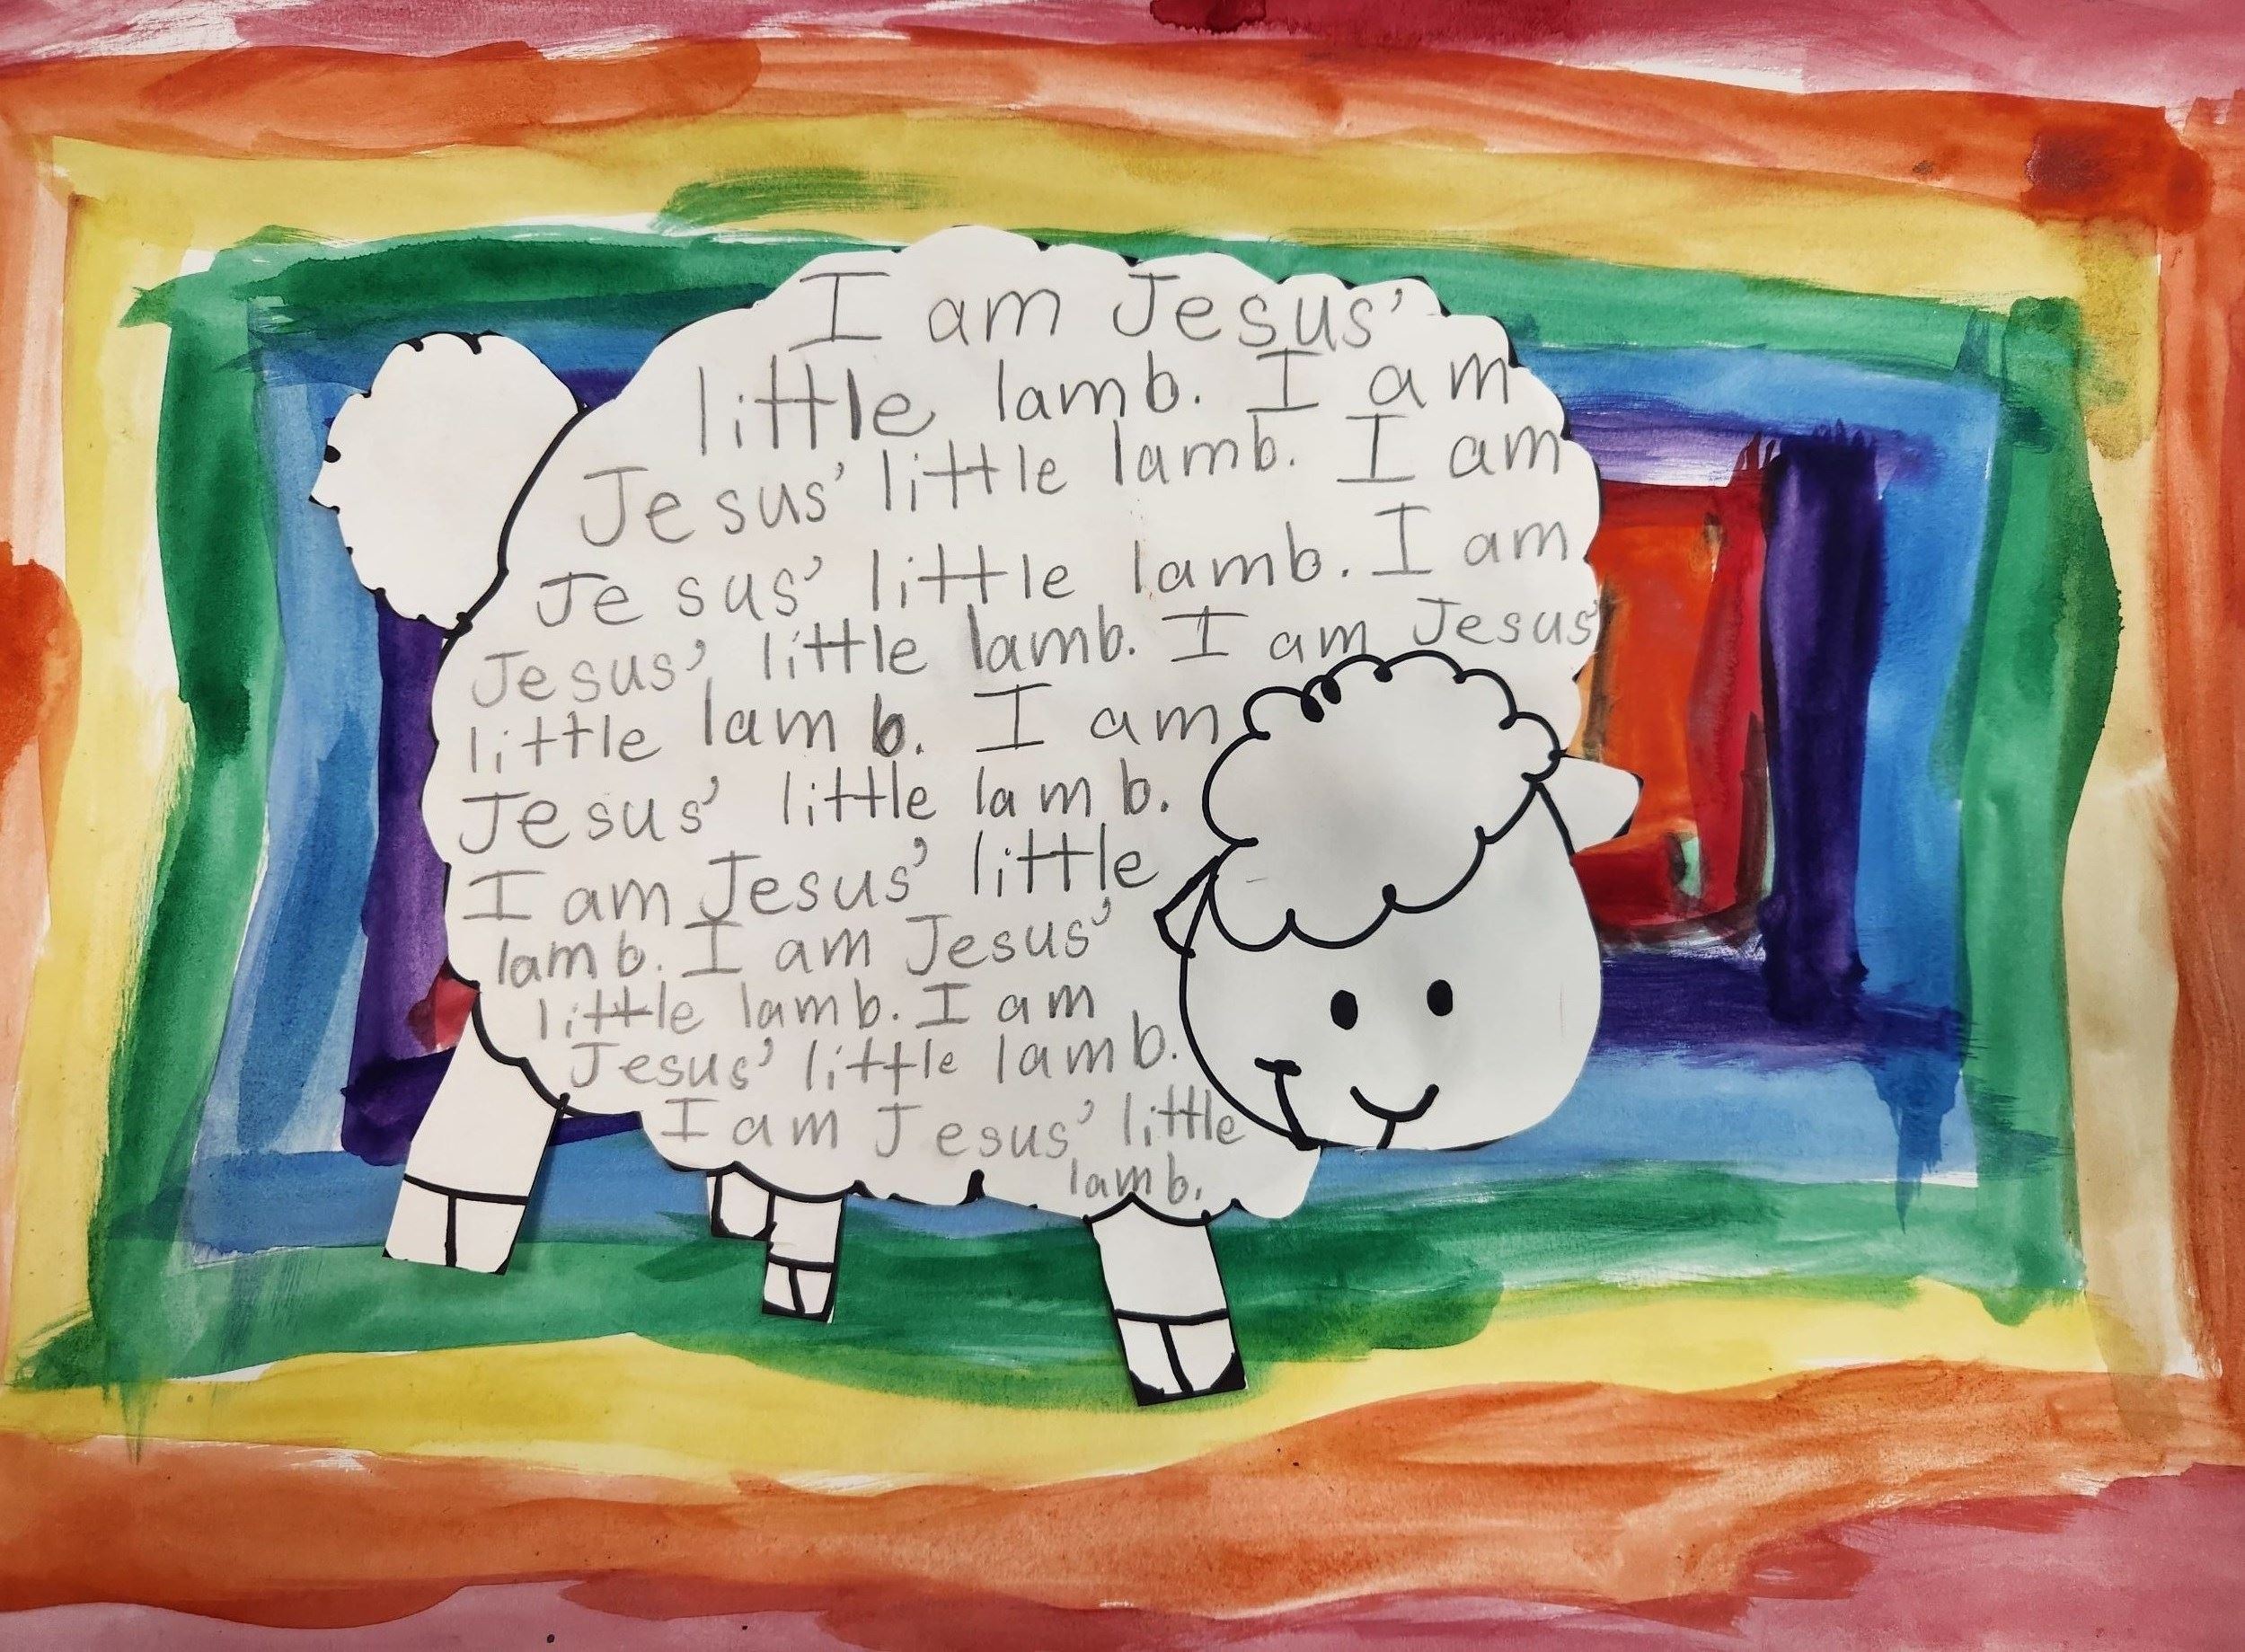 I am Jesus'
little lamb. I am
Jesus' little lamb. I am
Jesus' little lamb. I am
Jesus' little lamb. I am Jesus'
little lamb. I am
Jesus' little lamb.
I am Jesus' little
lamb. I am Jesus'
little lamb. I am
Jesus' little lamb.
I am Jesus' little
lamb.